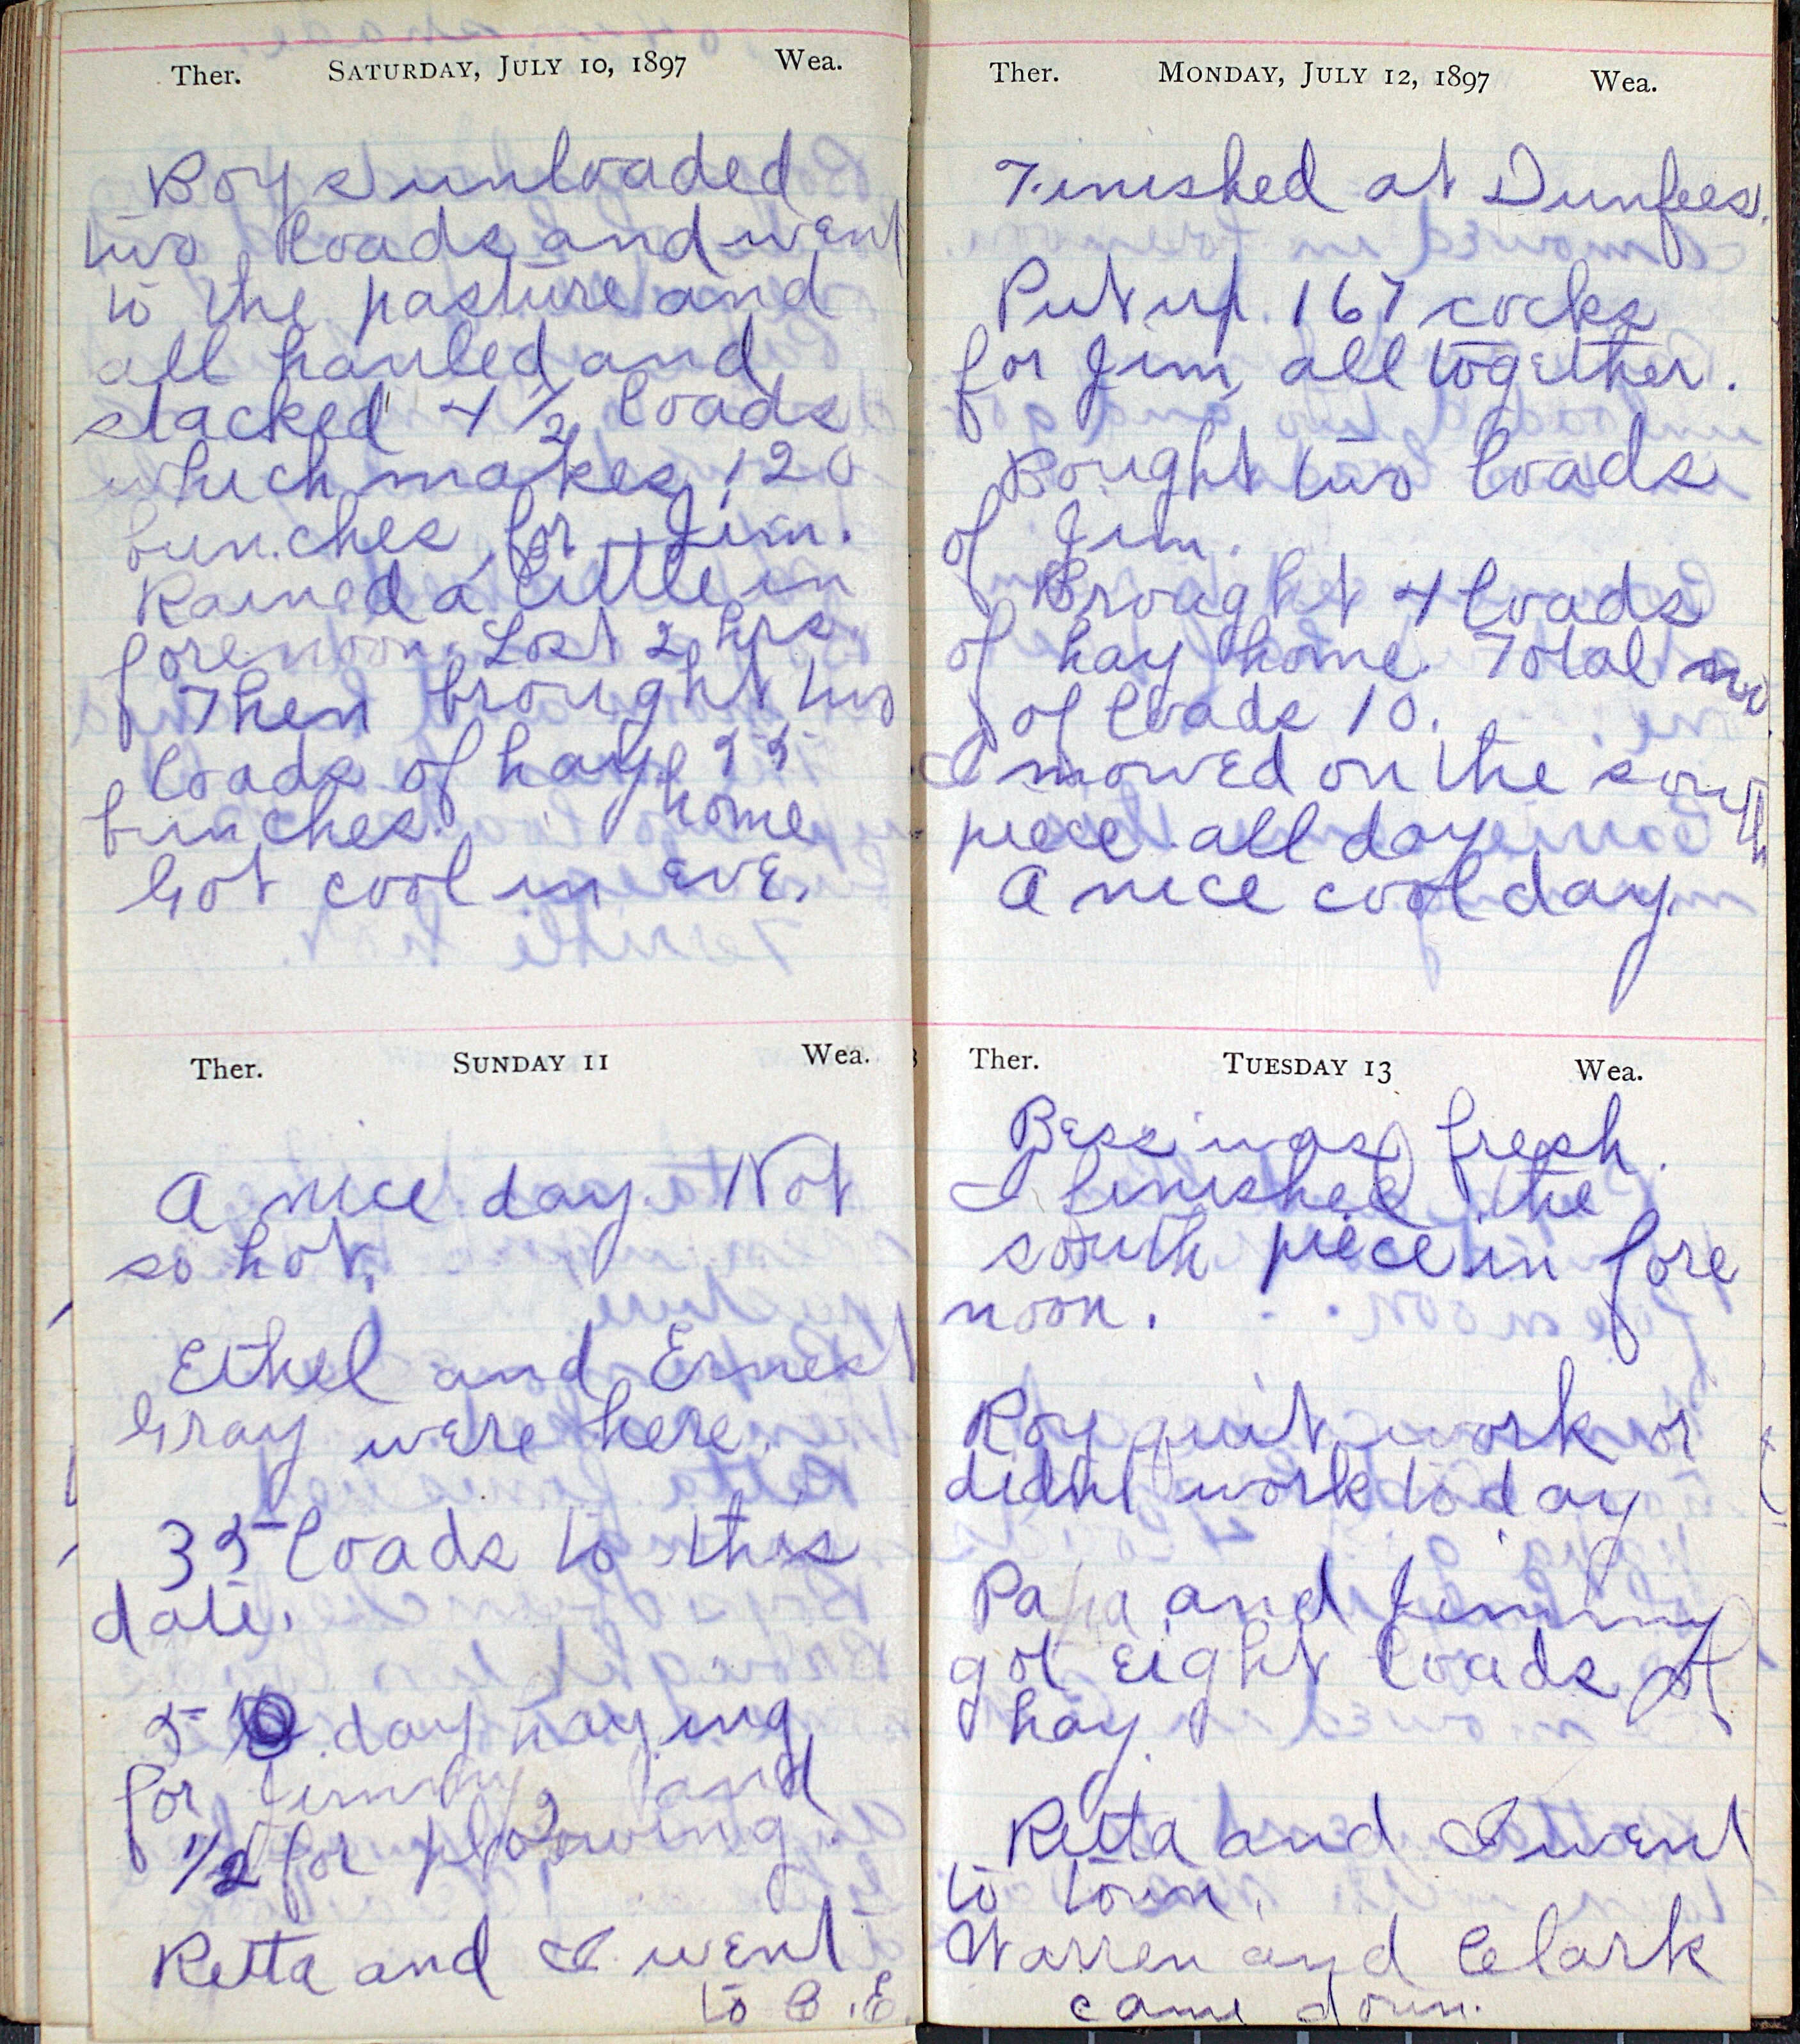 Ther. Saturday, July 10, 1897 Wea.
Boys unloaded
two loads and went
to the pasture and
all hauled and
stacked 4 1/2 loads
which makes 120
bunches for Jim.
Rained a little in
forenoon. Lost 2 hrs.
Then brought two
loads of hay 55
bunches. home
Got cool in eve.
Ther. Sunday 11 Wea.
A nice day. Not
so hot.
Ethel and Ernest
Gray were here.
35 loads to this
date.
5 day haying
for Jimmy and
1/2 for plowing.
Retta and I went
to C.E.
Ther. Monday, July 12, 1897 Wea.
Finished at Dunfees.
Put up 167 cocks
for Jim, all together.
Bought two loads
of Jim.
Brought 4 loads
of hay home. Total no
of loads 10.
I mowed on the south
piece all day
A nice cool day.
Ther. Tuesday 13 Wea.
Bess was fresh.
I finished the
south piece in fore
noon.
Roy quit work or
didnt work to day
Papa and Jimmy
got eight loads of
hay.
Retta and I went
to town.
Warren and Clark
came down.